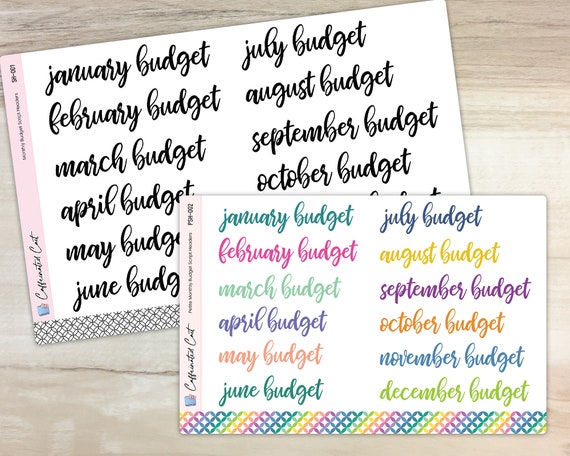 january budget
february budget
march budget
april budget
may budget
june budget
july budget
august budget
september budget
october budget
SH-001
Monthly Budget Script Headers
Caffeinated Cat
january budget
february budget
march budget
april budget
may budget
june budget
july budget
august budget
september budget
october budget
november budget
december budget
PSH-002
Petite Monthly Budget Script Headers
Caffeinated Cat